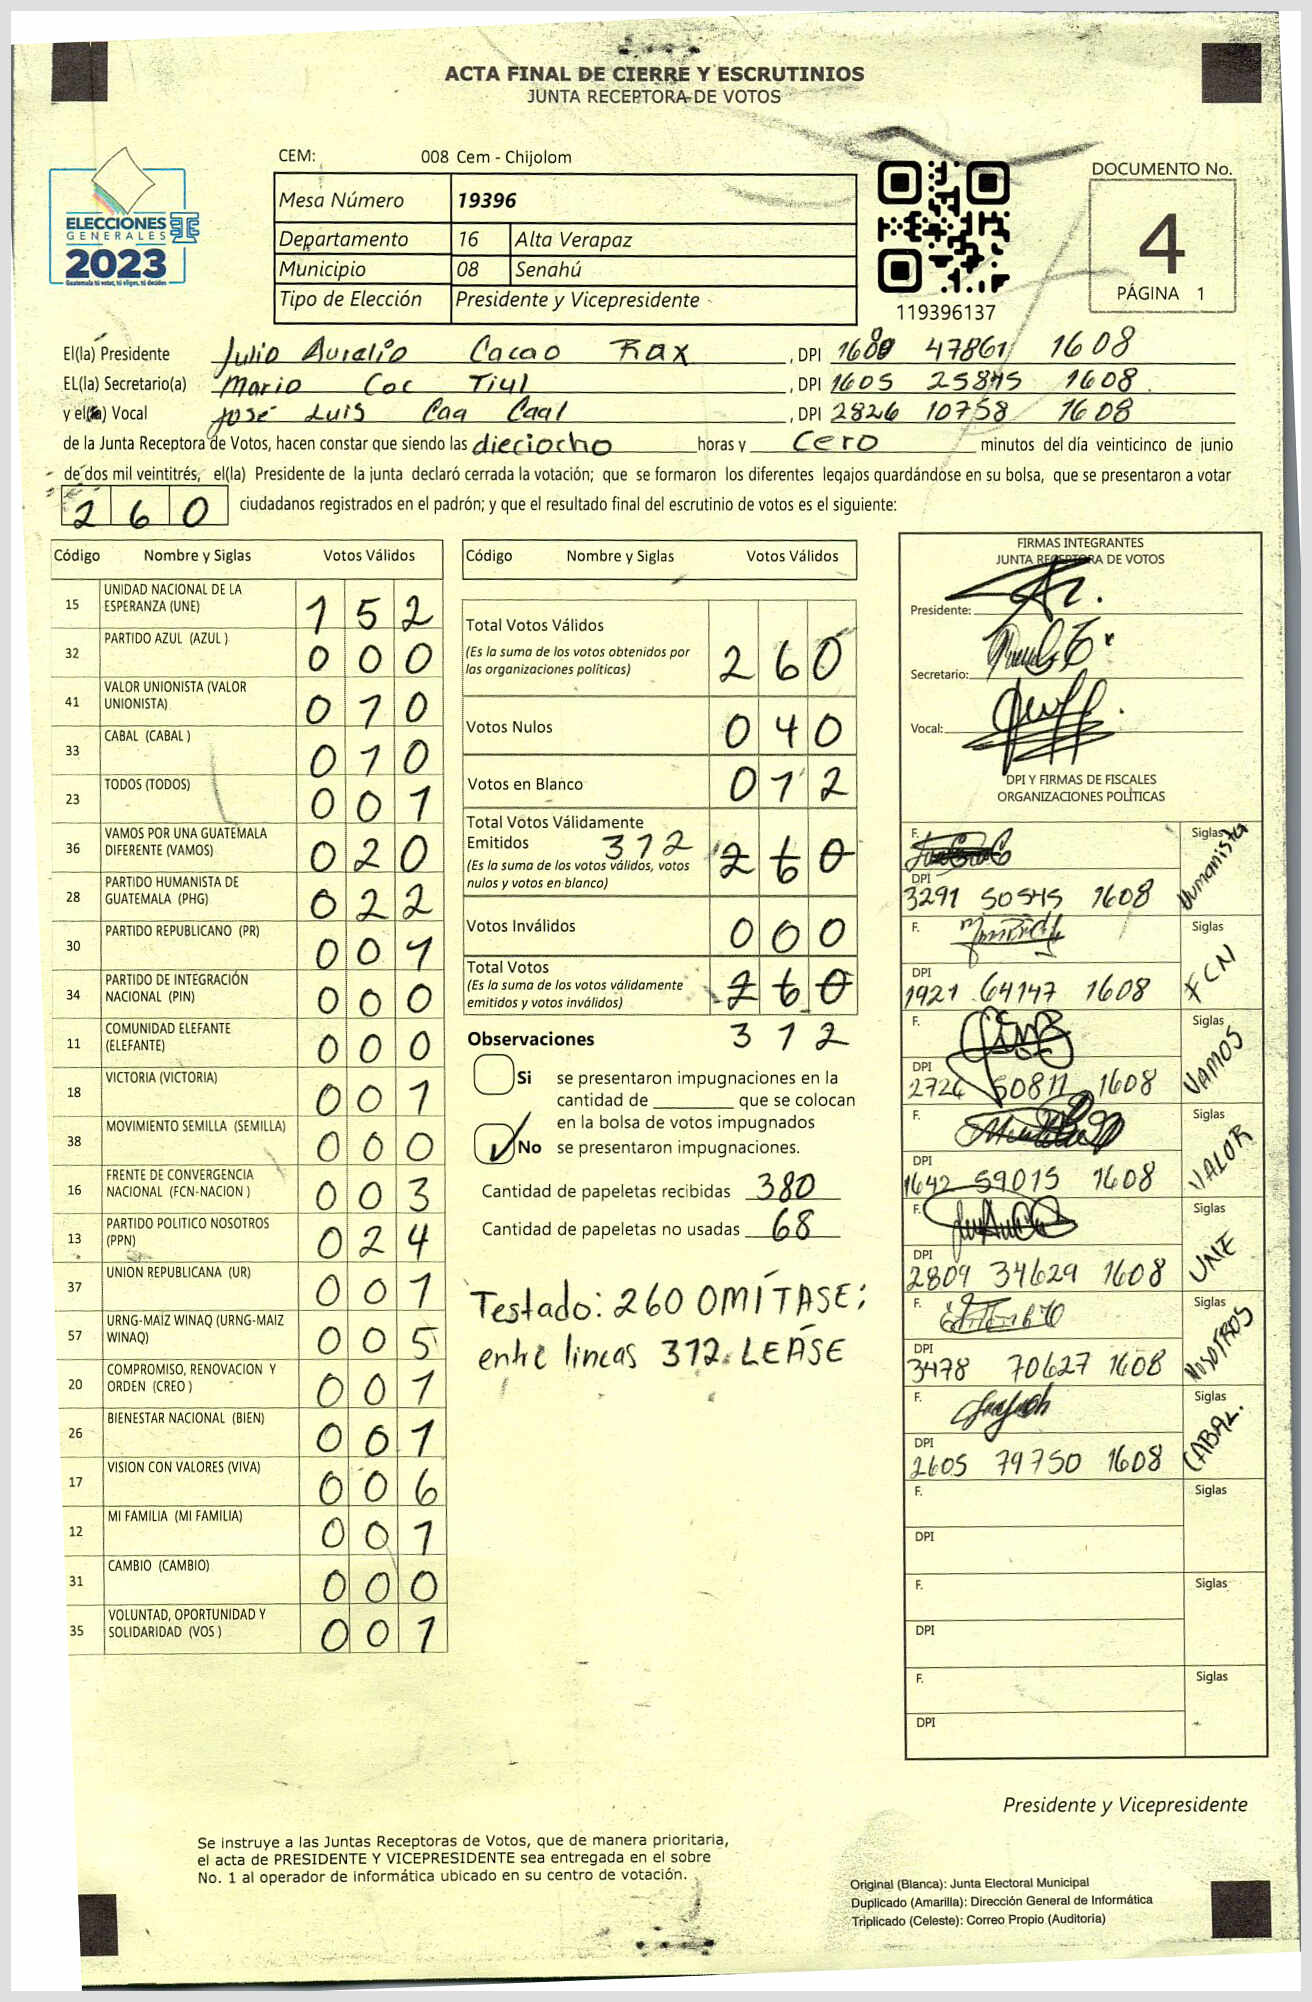 ACTA FINAL DE CIERRE Y ESCRUTINIOS
JUNTA RECEPTORA DE VOTOS
CEM: 008 Cem - Chijolom
ELECCIONES
GENERALES
2023
Guatemala tú votas, tú eliges, tú decides
Mesa Número 19396
Departamento 16 Alta Verapaz
Municipio 08 Senahú
Tipo de Elección Presidente y Vicepresidente
119396137
DOCUMENTO No.
4
PÁGINA 1
El(la) Presidente Julio Aurelio Cacao Rax, DPI 47861 1608
EL(la) Secretario(a) Mario Coc Tiul, DPI 1605 25845 1608
y el(la) Vocal José Luis Caal, DPI 2826 10758 1608
de la Junta Receptora de Votos, hacen constar que siendo las dieciocho horas y cero minutos del día veinticinco de junio
de dos mil veintitrés, el(la) Presidente de la junta declaró cerrada la votación; que se formaron los diferentes legajos guardándose en su bolsa, que se presentaron a votar
260 ciudadanos registrados en el padrón; y que el resultado final del escrutinio de votos es el siguiente:
Código Nombre y Siglas Votos Válidos
15 UNIDAD NACIONAL DE LA ESPERANZA (UNE) 152
32 PARTIDO AZUL (AZUL ) 000
41 VALOR UNIONISTA (VALOR UNIONISTA) 010
33 CABAL (CABAL ) 010
23 TODOS (TODOS) 001
36 VAMOS POR UNA GUATEMALA DIFERENTE (VAMOS) 020
28 PARTIDO HUMANISTA DE GUATEMALA (PHG) 022
30 PARTIDO REPUBLICANO (PR) 001
34 PARTIDO DE INTEGRACIÓN NACIONAL (PIN) 000
11 COMUNIDAD ELEFANTE (ELEFANTE) 000
18 VICTORIA (VICTORIA) 001
38 MOVIMIENTO SEMILLA (SEMILLA) 000
16 FRENTE DE CONVERGENCIA NACIONAL (FCN-NACION ) 003
13 PARTIDO POLITICO NOSOTROS (PPN) 024
37 UNION REPUBLICANA (UR) 001
57 URNG-MAIZ WINAQ (URNG-MAIZ WINAQ) 005
20 COMPROMISO, RENOVACION Y ORDEN (CREO ) 001
26 BIENESTAR NACIONAL (BIEN) 001
17 VISION CON VALORES (VIVA) 006
12 MI FAMILIA (MI FAMILIA) 001
31 CAMBIO (CAMBIO) 000
35 VOLUNTAD, OPORTUNIDAD Y SOLIDARIDAD (VOS ) 001
Código Nombre y Siglas Votos Válidos
Total Votos Válidos 260
(Es la suma de los votos obtenidos por
las organizaciones políticas)
Votos Nulos 040
Votos en Blanco 012
Total Votos Válidamente
Emitidos 312 260
(Es la suma de los votos válidos, votos
nulos y votos en blanco)
Votos Inválidos 000
Total Votos 260
(Es la suma de los votos válidamente
emitidos y votos inválidos)
312
Observaciones
Si se presentaron impugnaciones en la
cantidad de ________ que se colocan
en la bolsa de votos impugnados
No se presentaron impugnaciones.
Cantidad de papeletas recibidas 380
Cantidad de papeletas no usadas 68
Testado: 260 OMÍTASE;
entre lineas 312. LEASE
FIRMAS INTEGRANTES
JUNTA RECEPTORA DE VOTOS
Presidente:
Secretario:
Vocal:
DPI Y FIRMAS DE FISCALES
ORGANIZACIONES POLÍTICAS
F. Siglas Humanista
DPI 3291 50545 1608
F. Siglas FCN
DPI 1921 64147 1608
F. Siglas VAMOS
DPI 50811 1608
F. Siglas VALOR
DPI 1642 59015 1608
F. Siglas UNE
DPI 2809 34629 1608
F. Siglas NOSOTROS
DPI 3478 70627 1608
F. Siglas CABAL.
DPI 2605 79750 1608
F. Siglas
DPI
F. Siglas
DPI
F. Siglas
DPI
Presidente y Vicepresidente
Se instruye a las Juntas Receptoras de Votos, que de manera prioritaria,
el acta de PRESIDENTE Y VICEPRESIDENTE sea entregada en el sobre
No. 1 al operador de informática ubicado en su centro de votación.
Original (Blanca): Junta Electoral Municipal
Duplicado (Amarilla): Dirección General de Informática
Triplicado (Celeste): Correo Propio (Auditoría)